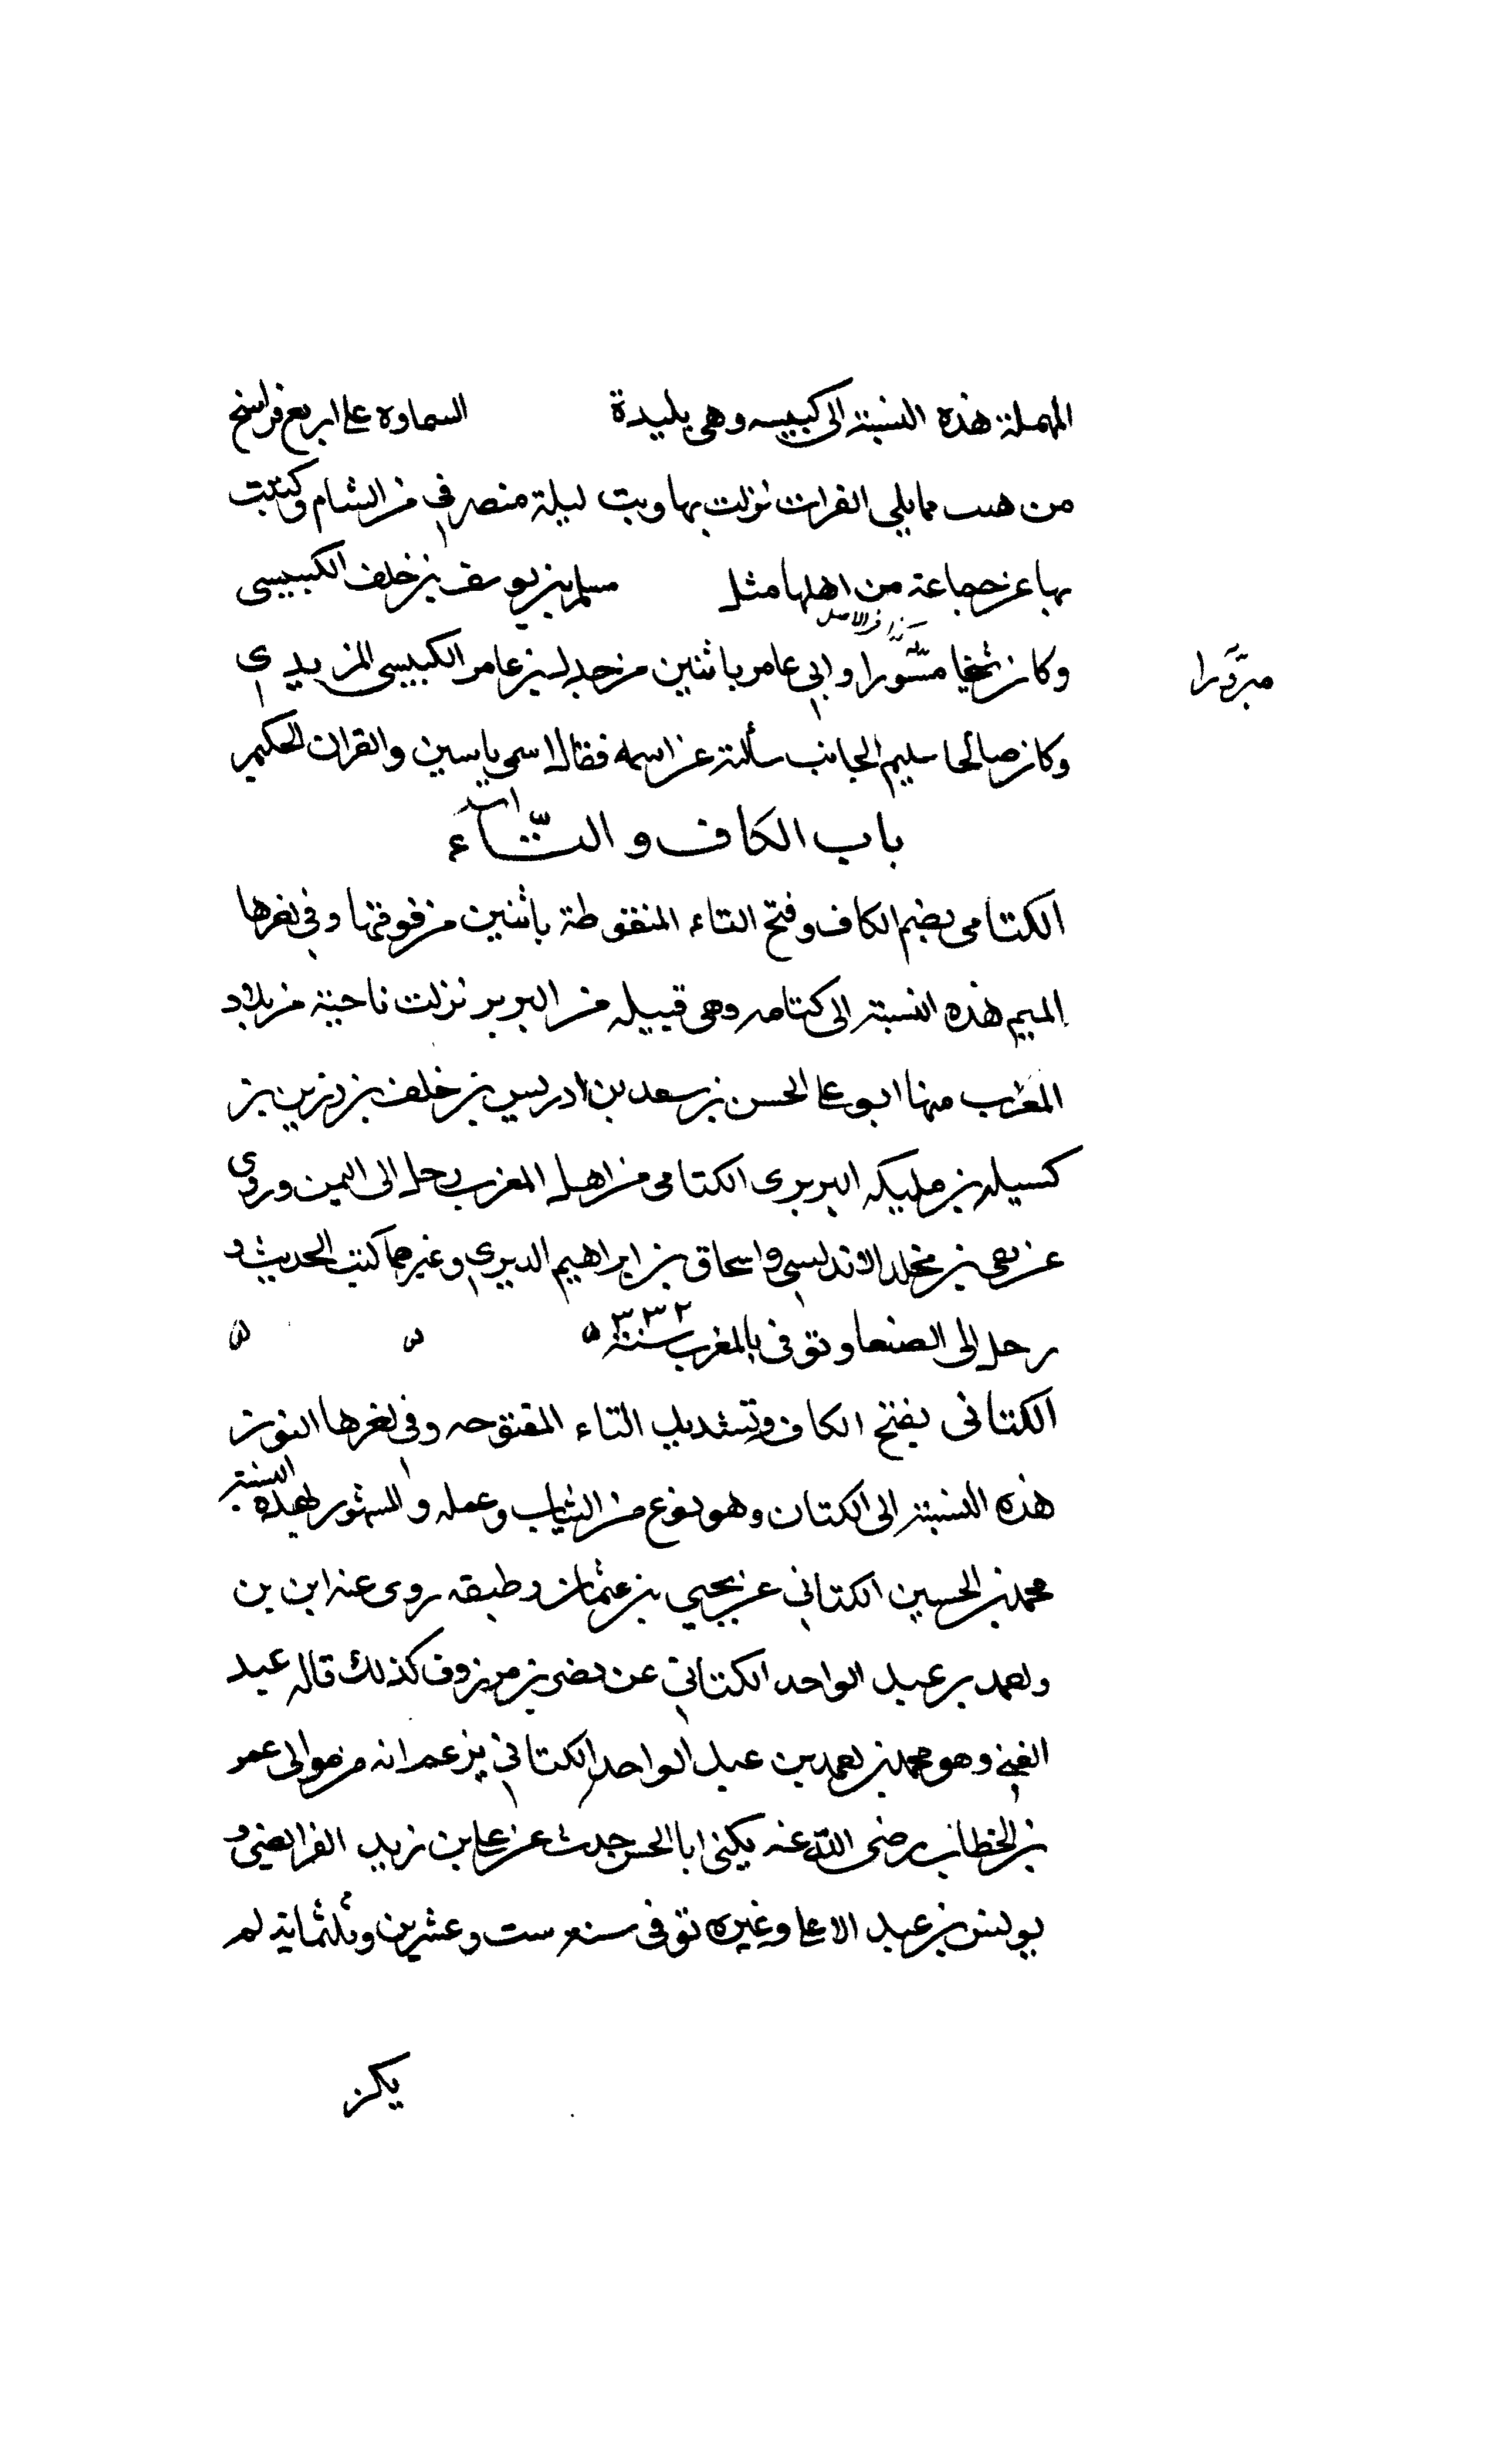 المهملة هذه النسبة الى كبيسه وهى بليدة السماوه على اربع فراسخ
من هيت مما يلي الفرات نزلت بها وبت ليلة منصرفى من الشام وكتبت
بها عن جماعة من اهلها مثل مسلم بن يوسف بن خلف الكبيسى
وكان شيخا وابى عامر ياسين الكبيسى المزيدى
مبرّزا
وكان صالحا سليم الجانب سألته عن اسمه فقال اسمى ياسين والقران الحكيم
باب الكاف والتّاء
الكتامى بضم الكاف وفتح التاء المنقوطة باثنين من فوقها وفى
الميم هذه النسبة الى كتامه وهى قبيله من البربر نزلت ناحية من بلاد
المغرب منها ابو على الحسن بن سعد بن ادريس بن خلف بن رزين بن
كسيله بن مليكه البربرى الكتامى من اهل المغرب رحل الى اليمن وروى
عن بقى بن مخلد الاندلسى واسحاق بن ابراهيم الدبرى وغيرهما كتب الحديث و
رحل الى الصنعا وتوفى بالمغرب سنة ٣٣٢
الكتانى بفتح الكاف وتشديد التاء المفتوحه وفى النون
هذه النسبة الى الكتان وهو نوع من الثياب وعمله والمشهور بهذه النسبة
محمد بن الحسين الكتاني عن يحيي بن عثمان وطبقه روى عنه ابن بن
عبد الواحد الكتاني عن بن مرزوف كذلك قاله عبد
الغني وهو محمد بن بن عبد الواحد الكتاني يزعم انه من موالى عمر
بن الخطاب رضى اللّه عنه يكنى ابا الحسن حدث عن على بن زيد الفرايضى و
يونس بن عبد الاعلى وغيره توفى سنه ست وعشرين وثلثماية لم
يكن